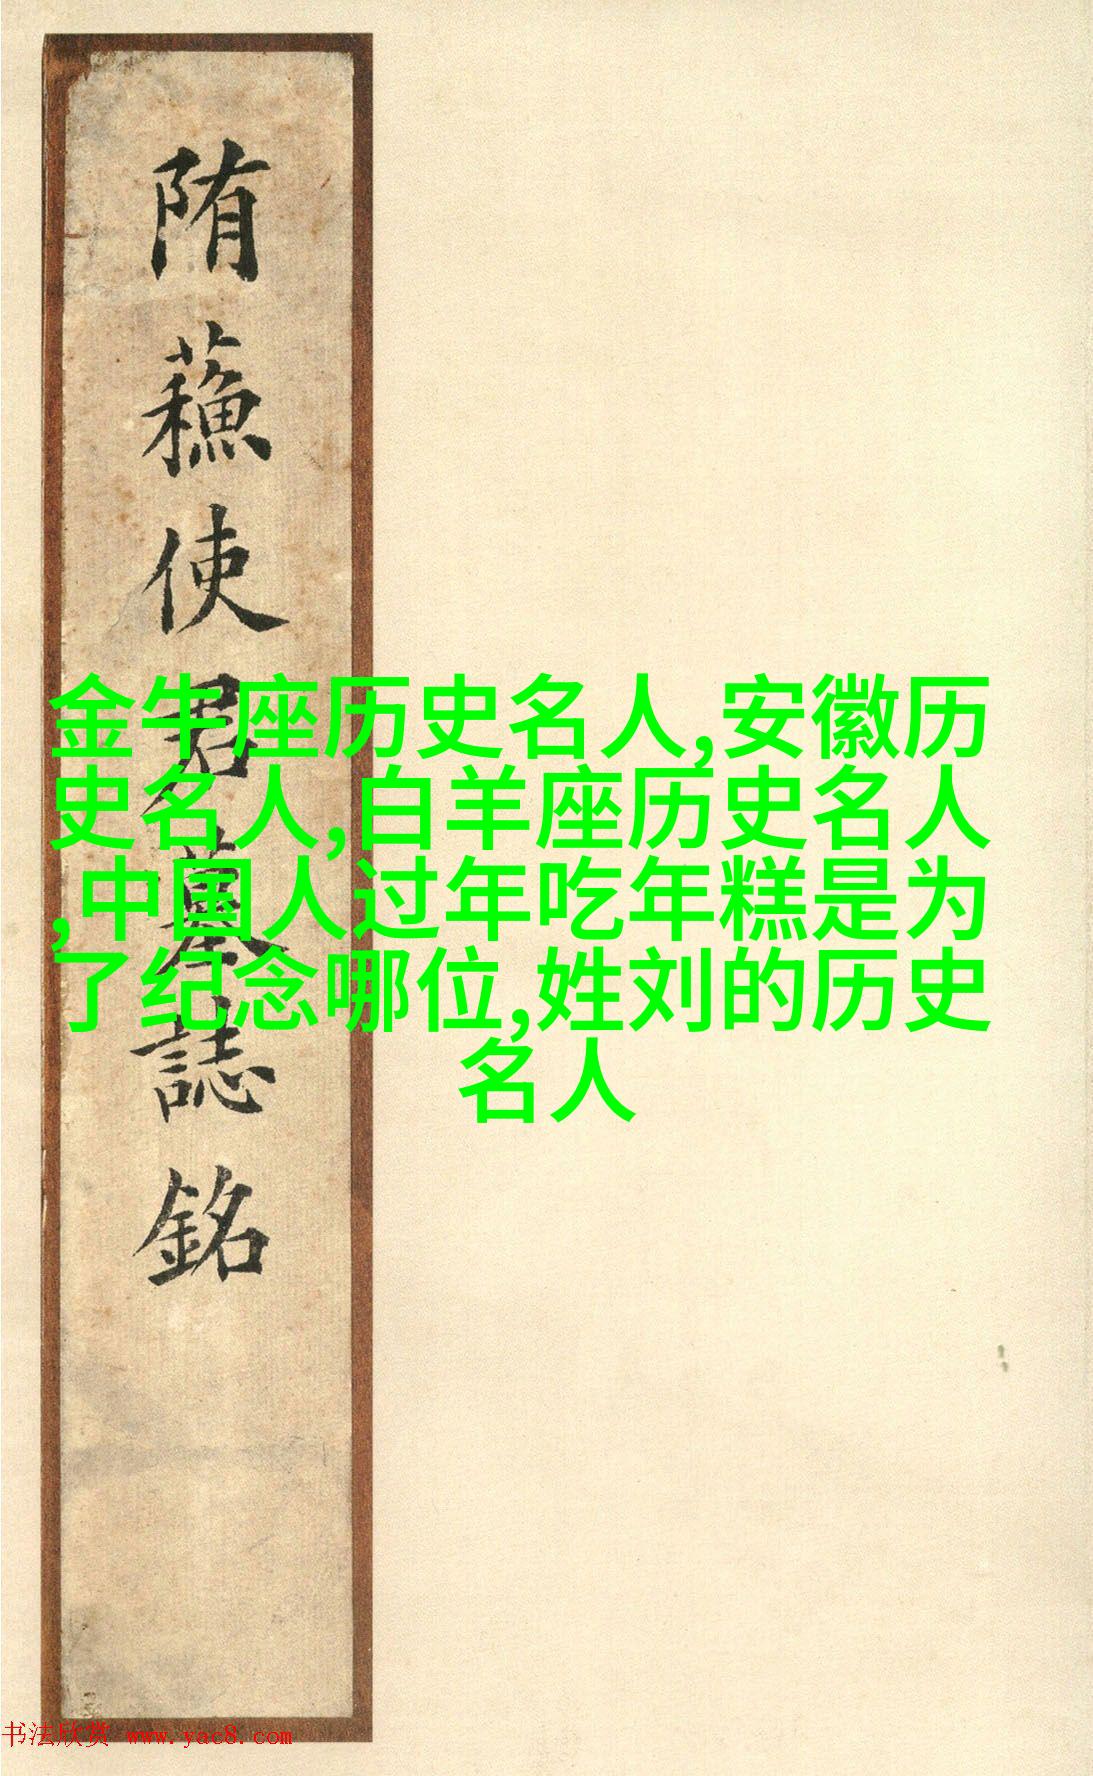 隋蘓使君墓誌銘
金牛座历史名人,安徽历
史名人,白羊座历史名人
,中国人过年吃年糕是为
了纪念哪位,姓刘的历史
名人
书法欣赏 www.yac8.com